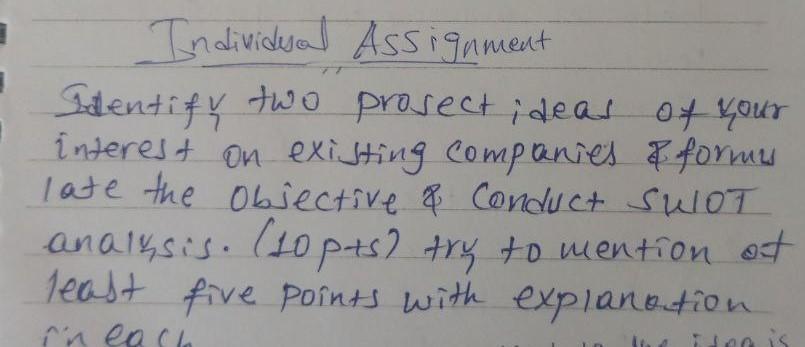 Individual Assignment
Identify two project ideas of your
interest on existing companies & formu
late the objective & Conduct SWOT
analysis. (10 pts) try to mention at
least five points with explanation
in each
idea is